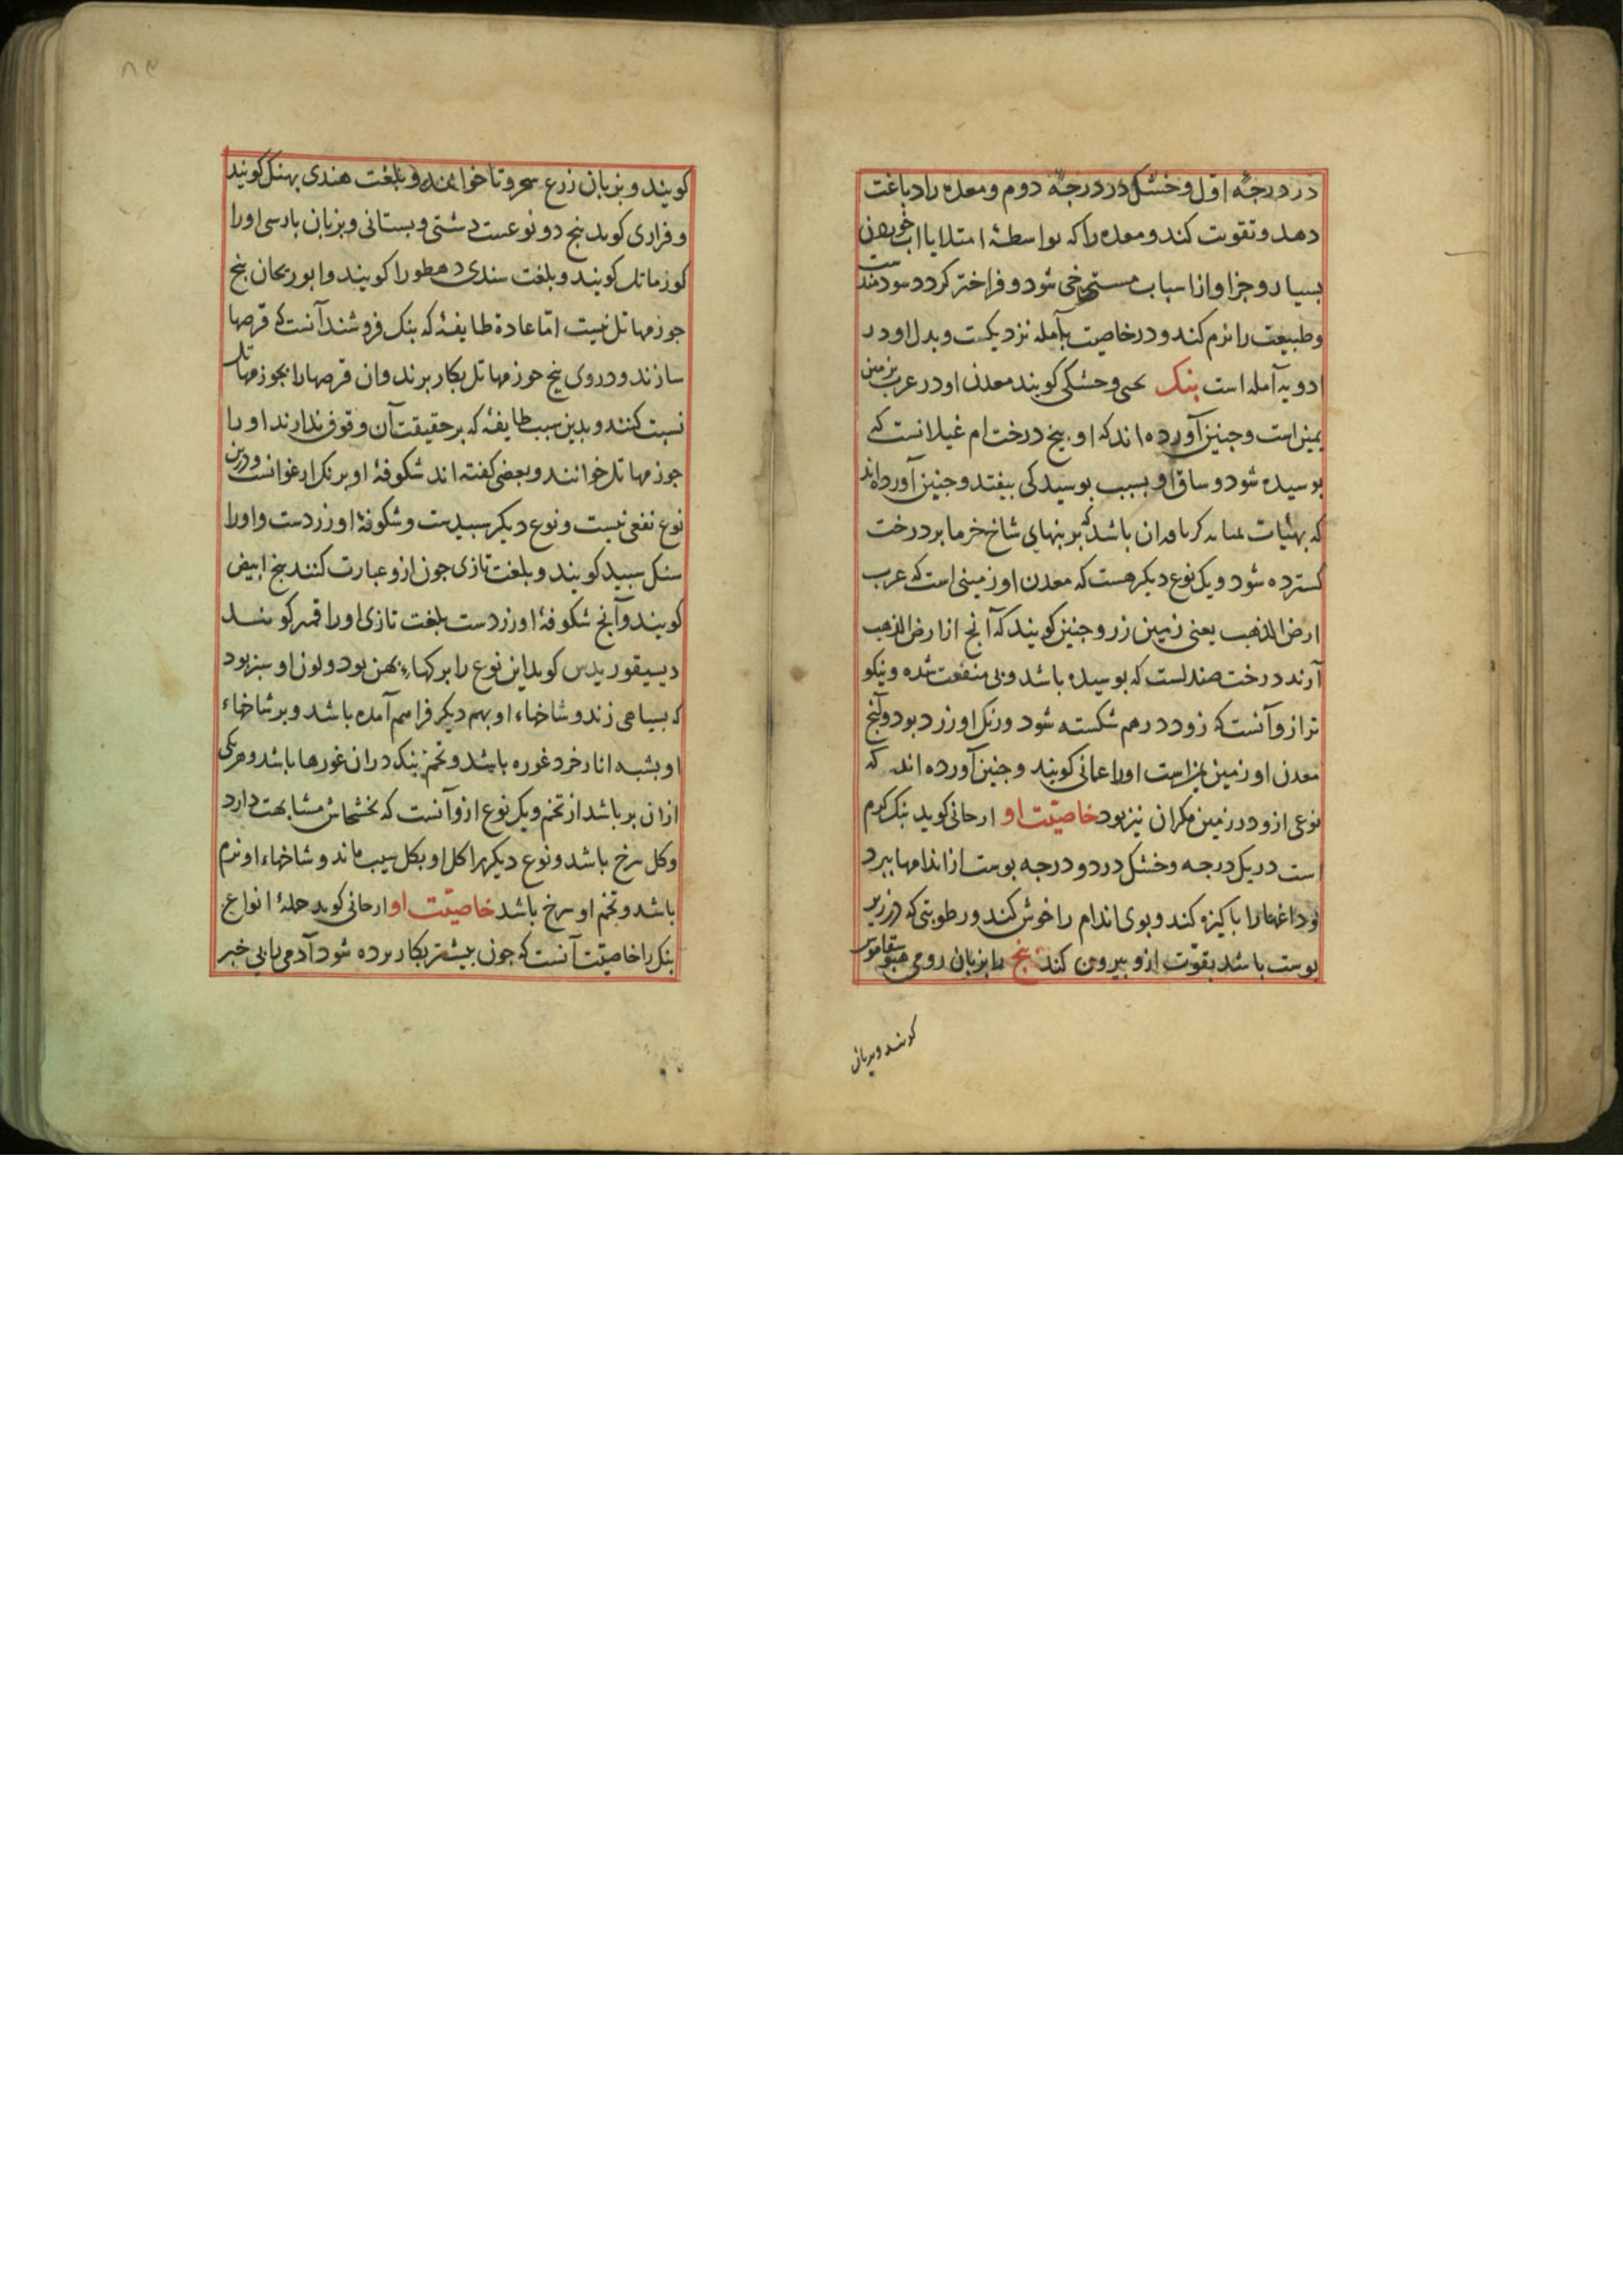 در درجه اول و خشک در درجه دوم و معده را دباغت
دهد و تقویت کند و معده را که بواسطهٔ امتلا یا آب خوردن
بسیار و جز او از اسباب مسترخی شود و فراختر کردد سودمند
وطبیعت را نرم کند و در خاصیت بآمله نزدیکست و بدل او در
ادویه آمله است بنک وحشکی کویند معدن او در عرب زمین
یمن است و جنین آورده اند که او بیخ درخت ام غیلانست که
بوسیده شود و ساق او بسبب بوسیدکی بیفتد و جنین آورده اند
که بهئیات باشد که بر بنهای شاخ خرما بر درخت
کسترده شود و یک نوع دیکر هست که معدن او زمینی است که عرب
ارض الذهب یعنی زمین زر و جنین کویند که آنج از ارض الذهب
آرند درخت صندلست که بوسیده باشد و بی منفعت شده و نیکو
تر ازو آنست که زود درهم شکسته شود و رنک او زرد بود و آنج
معدن او زمین است اورا عمانی کویند و جنین آورده اند که
نوعی ازو در زمین مکران نیز بود خاصیت او ارجانی کوید بنک کرم
است در یک درجه و خشک در دو درجه بوست از اندامها ببرد
و داغها را باکیزه کند و بوی اندام را خوش کند و رطوبتی که در زیر
بوست باشد بقوت ازو بیرون کند بنج را بزبان رومی
کویند و بزبان
۸۹
کویند و بزبان زرع خوانند و بلغت هندی بهنک کویند
و فزاری کوید بنج دو نوعست دشتی و بستانی و بزبان بارسی اورا
کوزماتل کویند و بلغت سندی دهطورا کویند و ابوریحان بنج
جوز مهاتل نیست اما عادة طایفهٔ که بنک فروشند آنست که قرصها
سازند و در وی بنج جوز مهاتل بکار برند و آن قرصها را بجوز مهاتل
نسبت کنند و بدین سبب طایفهٔ که بر حقیقت آن وقوف ندارند اورا
جوز مهاتل خوانند و بعضی کفته اند شکوفهٔ او برنک ارغوانست و درین
نوع نفعی نیست و نوع دیکر سبیدست و شکوفهٔ او زردست و اورا
سنک سبید کویند و بلغت تازی جون ازو عبارت کنند بنج ابیض
کویند و آنج شکوفهٔ او زردست بلغت تازی اورا کویند
دیسیقوریدس کوید این نوع را برکهاء بهن بود و لون او سبز بود
که بسیاهی زند و شاخهاء او بهم دیکر فراهم آمده باشد و بر شاخهاء
او بشبه انار خرد غوره باشد و تخم بنک در آن غورها باشد و هریکی
از آن بر باشد از تخم و یک نوع ازو آنست که بخشخاش مشابهت دارد
وکل سرخ باشد و نوع دیکر را کل او بکل سیب ماند و شاخهاء او نرم
باشد و تخم او سرخ باشد خاصیت او ارجانی کوید جملهٔ انواع
بنک را خاصیت آنست که جون بیشتر بکار برده شود آدمی را بی خبر